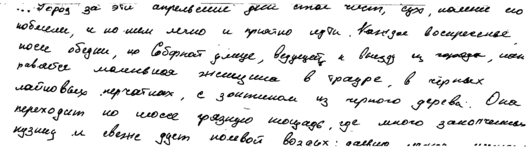 ... Город за эти апрельские дни стал чист, сух, камни его
побелели, и по ним легко и приятно идти. Каждое воскресенье
после обедни, по Соборной улице, ведущей к выезду из города, нап
равляется маленькая женщина в трауре, в чёрных
лайковых перчатках, с зонтиком из черного дерева. Она
переходит по шоссе грязную площадь, где много закопченных
кузниц и свежо дует полевой воздух; далее